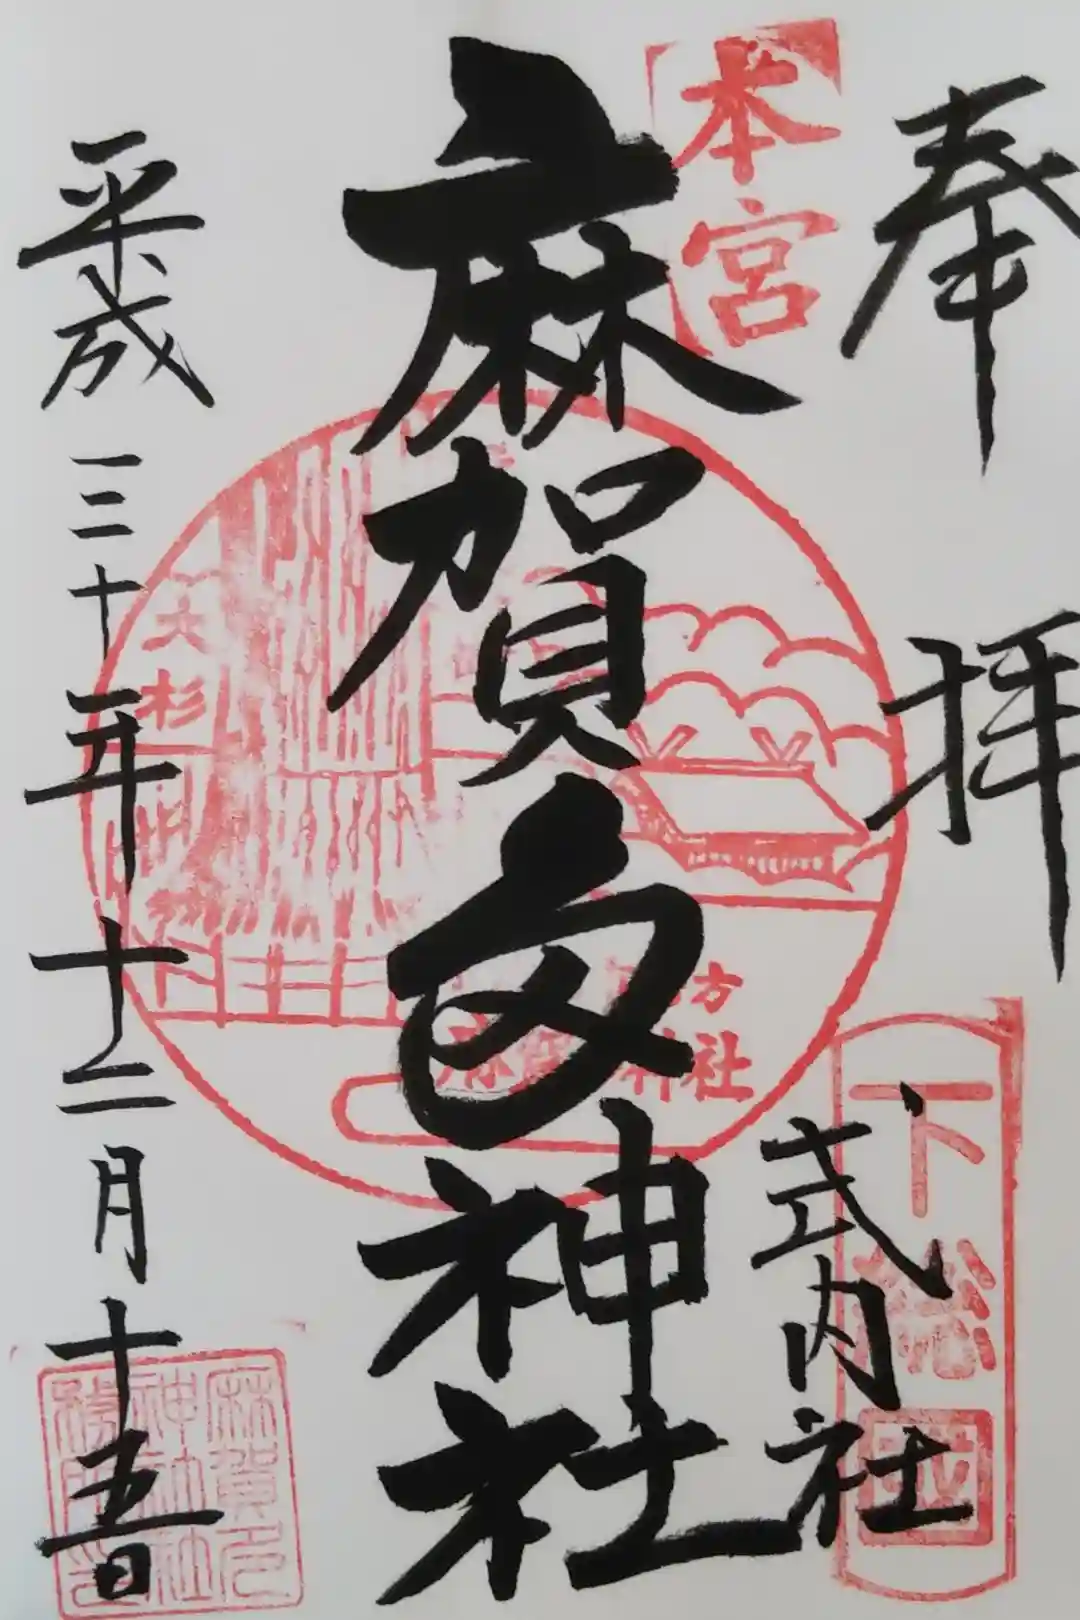 奉拝
本宮
下総国
式内社
麻賀多神社
大杉
台方
麻賀多神社
平成三十年十二月十五日
麻賀多
神社社
務所印